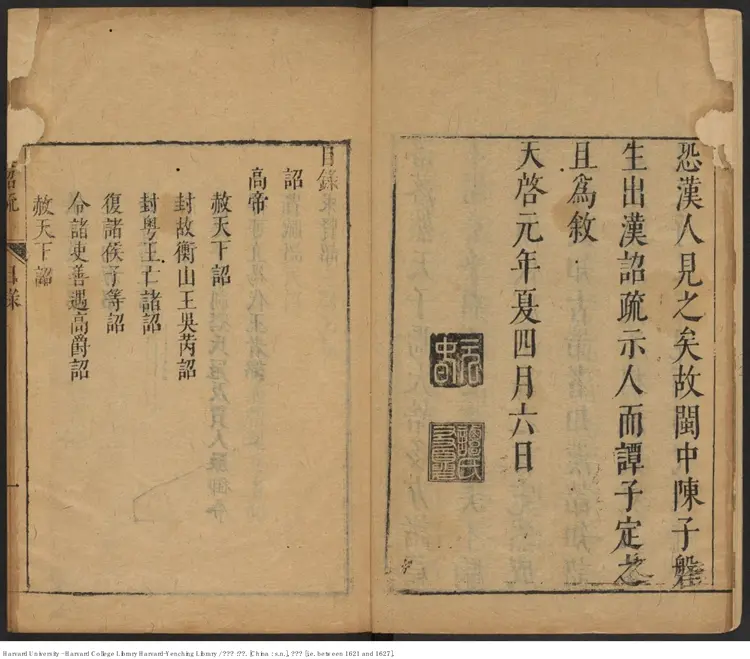 恐漢人見之矣故閩中陳子磐
生出漢詔疏示人而譚子定之
且為敘
天啓元年夏四月六日
目錄
詔
高帝
赦天下詔
封故衡山王吳芮詔
封粵王亡諸詔
復諸侯子等詔
令諸吏善遇高爵詔
赦天下詔
詔疏
目錄
一
Harvard University - Harvard College Library Harvard-Yenching Library / ??? : ??. [China : s.n.], ??? [i.e. between 1621 and 1627].